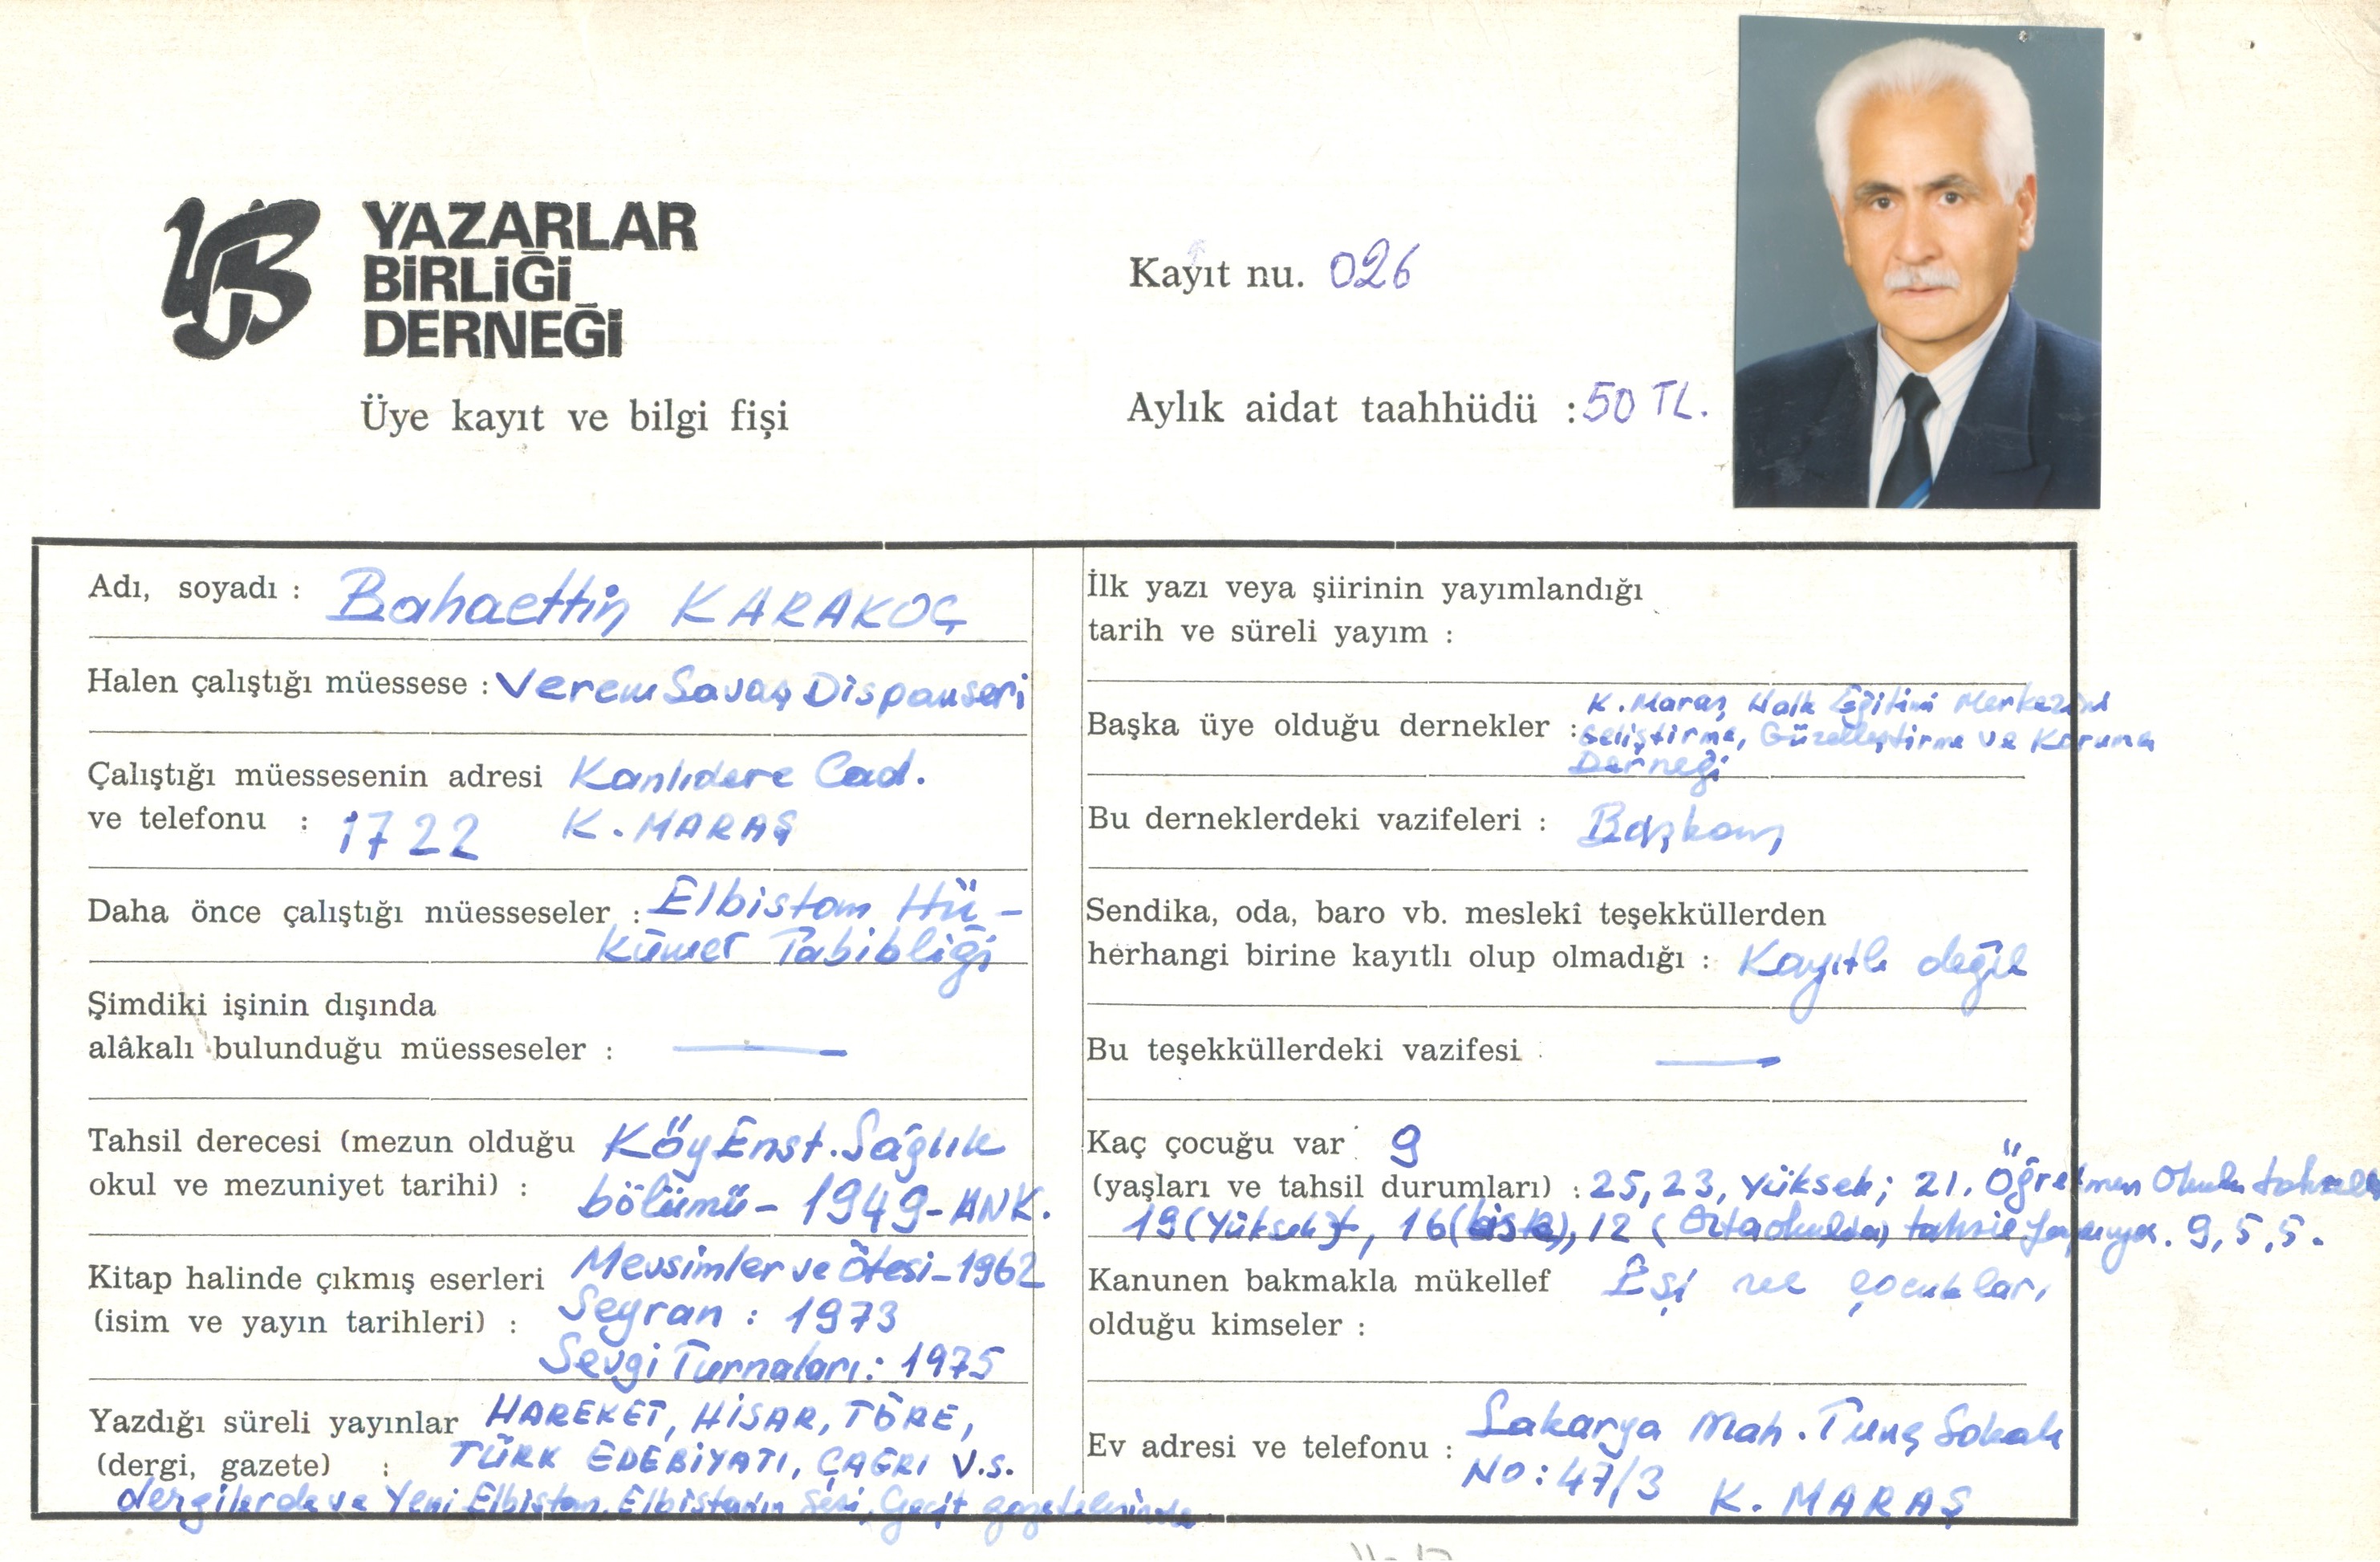 YAZARLAR
BİRLİĞİ
DERNEĞİ
Üye kayıt ve bilgi fişi
Kayıt nu. 026
Aylık aidat taahhüdü : 50 TL.
Adı, soyadı : Bahaettin KARAKOÇ
Halen çalıştığı müessese : Verem Savaş Dispanseri
Çalıştığı müessesenin adresi Kanlıdere Cad.
ve telefonu : 1722 K. MARAŞ
Daha önce çalıştığı müesseseler : Elbistan Hü-
kümet Tabibliği
Şimdiki işinin dışında
alâkalı bulunduğu müesseseler : —
Tahsil derecesi (mezun olduğu Köy Enst. Sağlık
okul ve mezuniyet tarihi) : bölümü - 1949 - ANK.
Kitap halinde çıkmış eserleri Mevsimler ve Ötesi - 1962
(isim ve yayın tarihleri) : Seyran : 1973
Sevgi Turnaları : 1975
Yazdığı süreli yayınlar HAREKET, HİSAR, TÖRE,
(dergi, gazete) : TÜRK EDEBİYATI, ÇAĞRI V.S.
dergilerde ve Yeni Elbistan, Elbistan'ın Sesi, Geçit gazetelerinde
İlk yazı veya şiirinin yayımlandığı
tarih ve süreli yayım :
K. Maraş Halk Eğitimi Merkezini
Başka üye olduğu dernekler : Geliştirme, Güzelleştirme ve Koruma
Derneği
Bu derneklerdeki vazifeleri : Başkan
Sendika, oda, baro vb. meslekî teşekküllerden
herhangi birine kayıtlı olup olmadığı : Kayıtlı değil
Bu teşekküllerdeki vazifesi : —
Kaç çocuğu var : 9
(yaşları ve tahsil durumları) : 25, 23, Yüksek; 21. Öğretmen Okulu
19 (Yüksek), 16 (lise), 12 (Ortaokulda) tahsil yapıyor. 9, 5, 5.
Kanunen bakmakla mükellef Eşi ve çocukları
olduğu kimseler :
Sakarya Mah. Tunç Sokak
Ev adresi ve telefonu : No: 47/3 K. MARAŞ